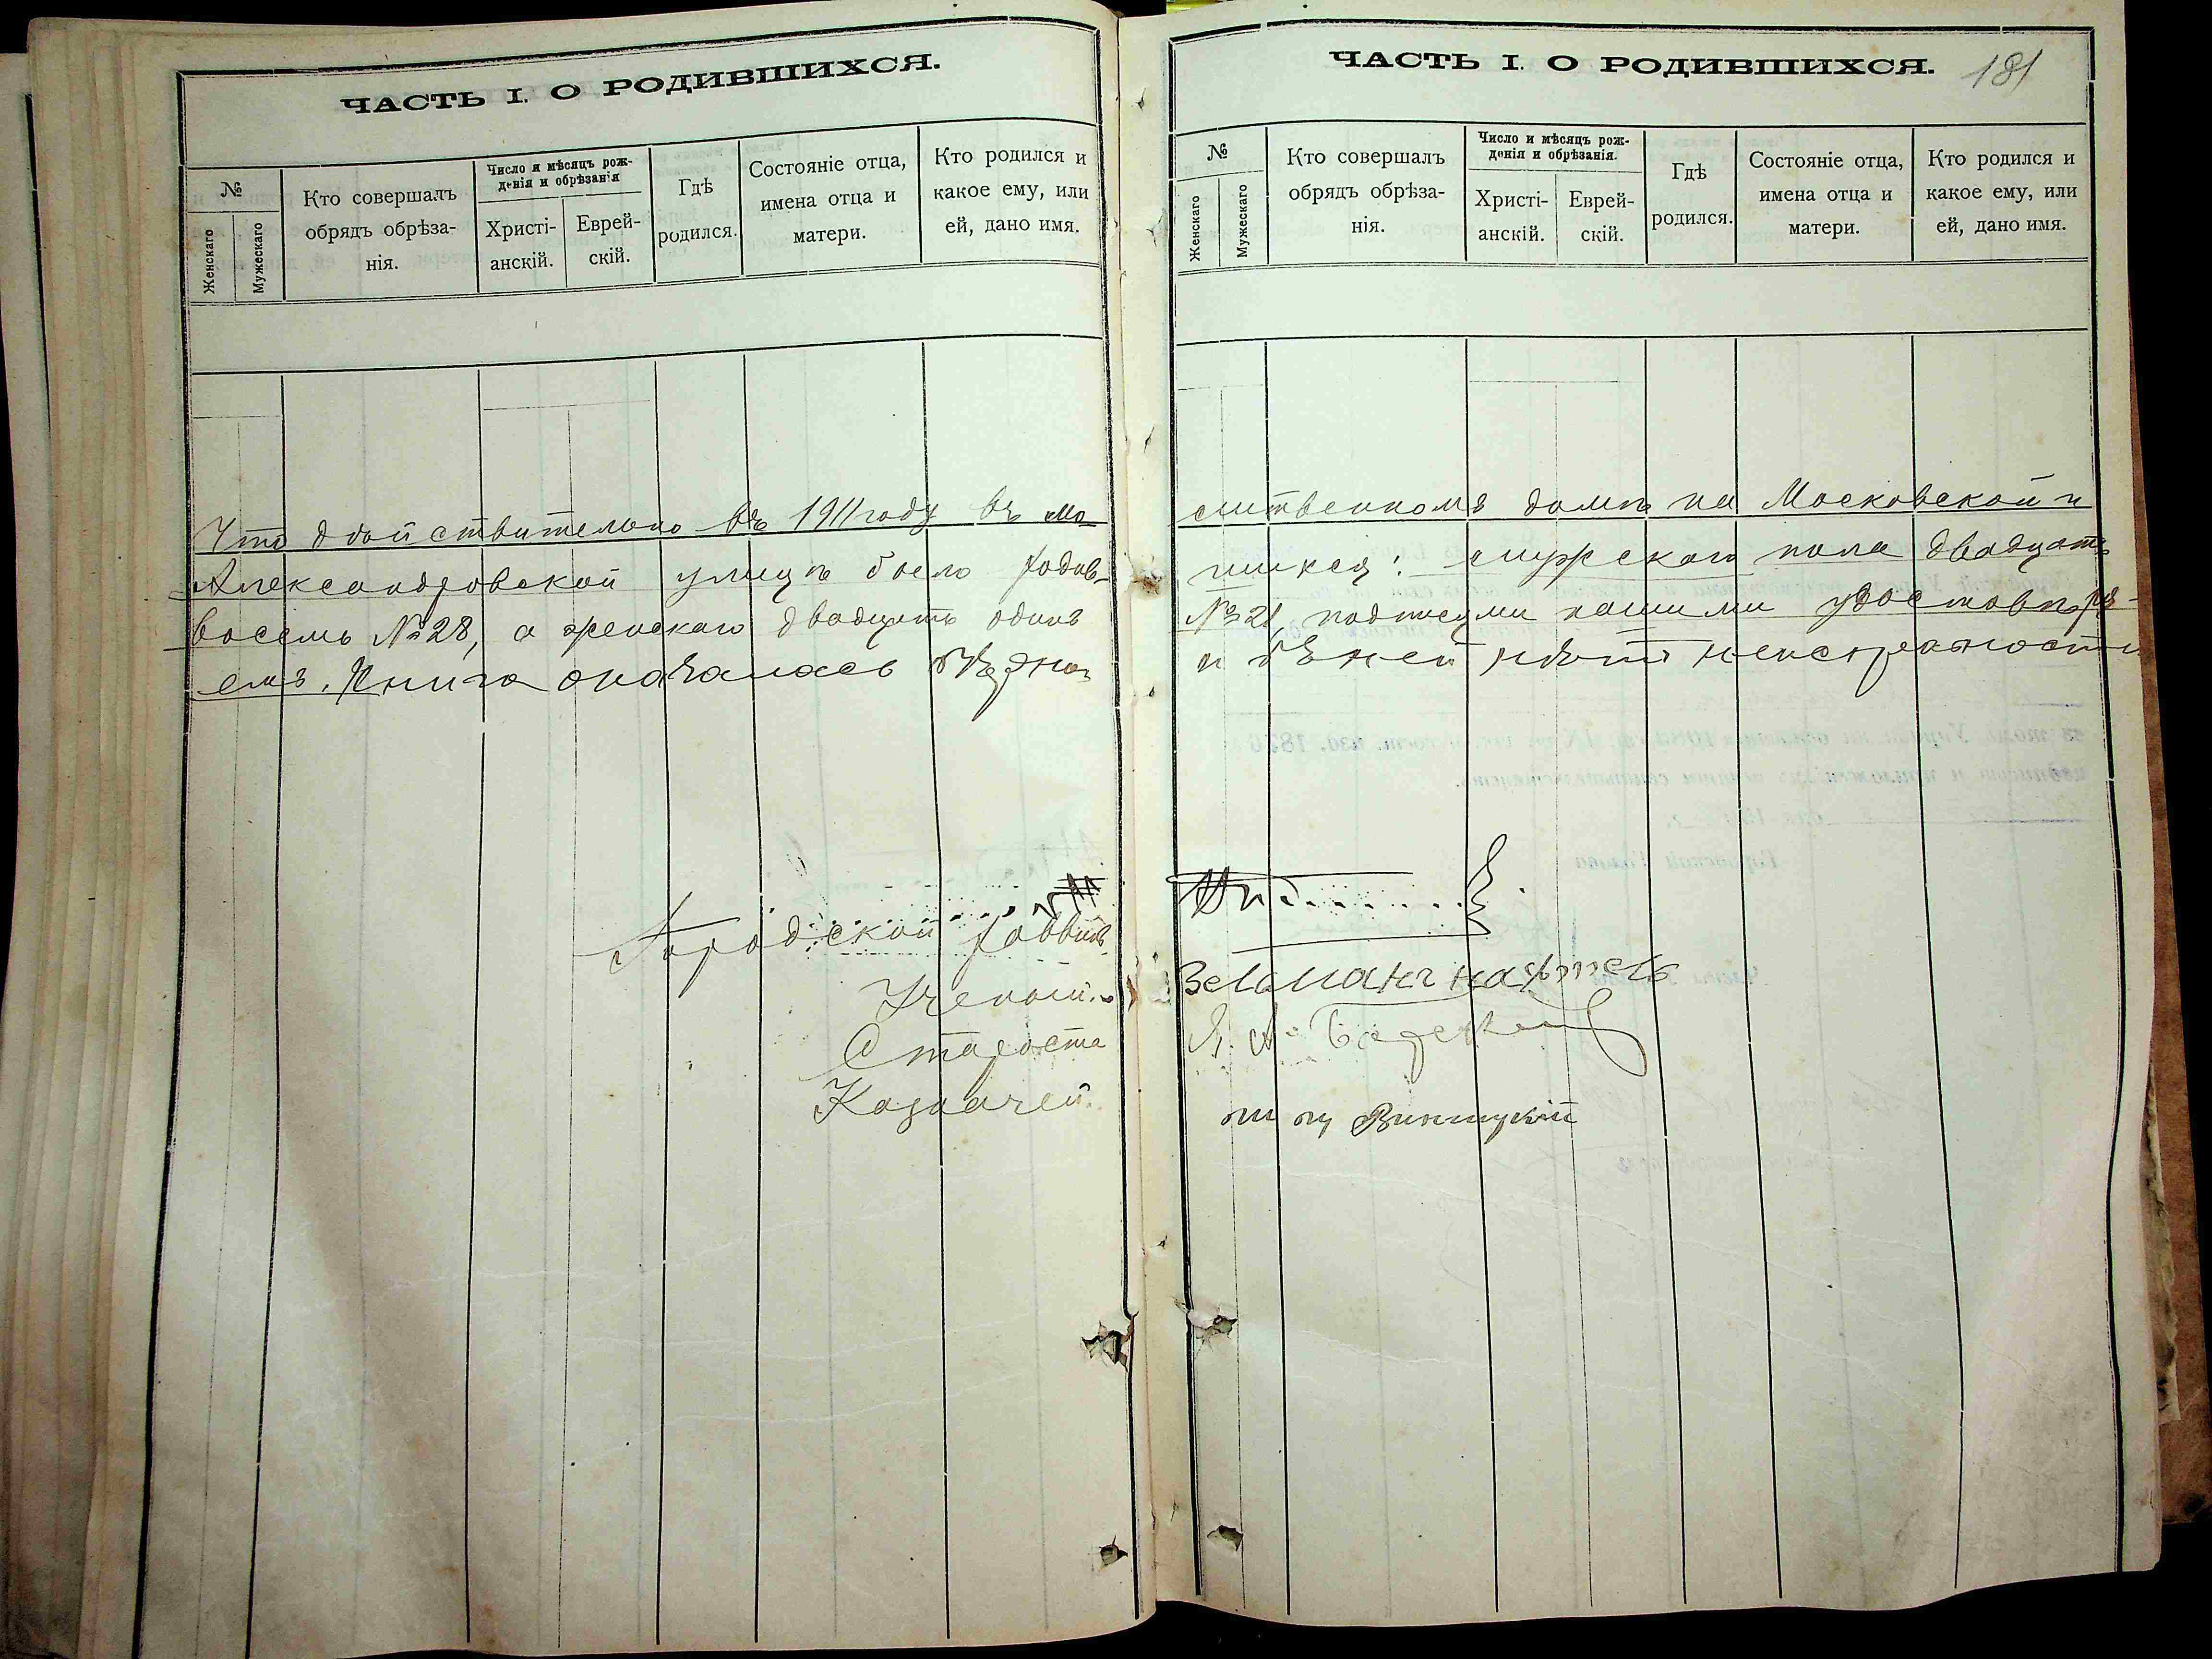 ЧАСТЬ I. О РОДИВШИХСЯ.
№
Женскаго
Мужескаго
Кто совершалъ
обрядъ обрѣза-
нія.
Число и мѣсяцъ рож-
денія и обрѣзанія
Христі-
анскій.
Еврей-
скій.
Гдѣ
родился.
Состояніе отца,
имена отца и
матери.
Кто родился и
какое ему, или
ей, дано имя.
Что действительно въ 1911 году въ мо
Александровской улицѣ было родив-
восемь №28, а женскаго двадцать одинъ
емъ. Книга оказалась
Городской раввинъ
Ученый
Староста
Казначей
ЧАСТЬ I. О РОДИВШИХСЯ.
181
№
Женскаго
Мужескаго
Кто совершалъ
обрядъ обрѣза-
нія.
Число и мѣсяцъ рож-
денія и обрѣзанія.
Христі-
анскій.
Еврей-
скій.
Гдѣ
родился.
Состояніе отца,
имена отца и
матери.
Кто родился и
какое ему, или
ей, дано имя.
литвенномъ домѣ на Московской и
шихся: мужскаго пола двадцать
№21, подписями нашими удостовѣря-
и въ ней нѣтъ неисправности
Винницкій